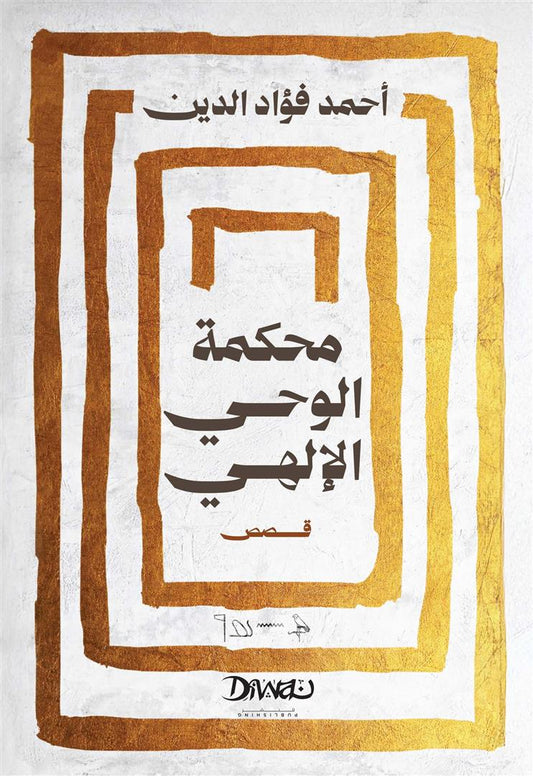 أحمد فؤاد الدين
محكمة
الوحي
الإلهي
قصص
DIWAN
PUBLISHING